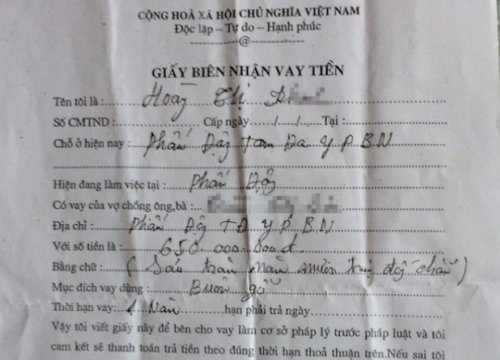 CỘNG HOÀ XÃ HỘI CHỦ NGHĨA VIỆT NAM
Độc lập – Tự do – Hạnh phúc
@
GIẤY BIÊN NHẬN VAY TIỀN
Tên tôi là: Hoàng Thị
Số CMTND: Cấp ngày / / Tại:
Chỗ ở hiện nay: Phấn Động Tam Đa Y P B N
Hiện đang làm việc tại: Phấn Động
Có vay của vợ chồng ông, bà:
Địa chỉ: Phấn Động TĐ Y P B N
Với số tiền là: 650.000.000đ
Bằng chữ: (Sáu trăm năm mươi triệu đồng chẵn)
Mục đích vay dùng: Buôn
Thời hạn vay: 1 Năm hạn phải trả ngày
Vậy tôi viết giấy này để bên cho vay làm cơ sở pháp lý trước pháp luật và tôi
cam kết sẽ thanh toán trả tiền theo đúng thời hạn thoả thuận trên. Nếu sai tôi